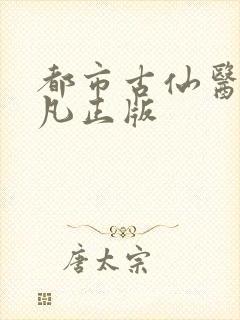 都市古仙醫
凡正版
唐太宗